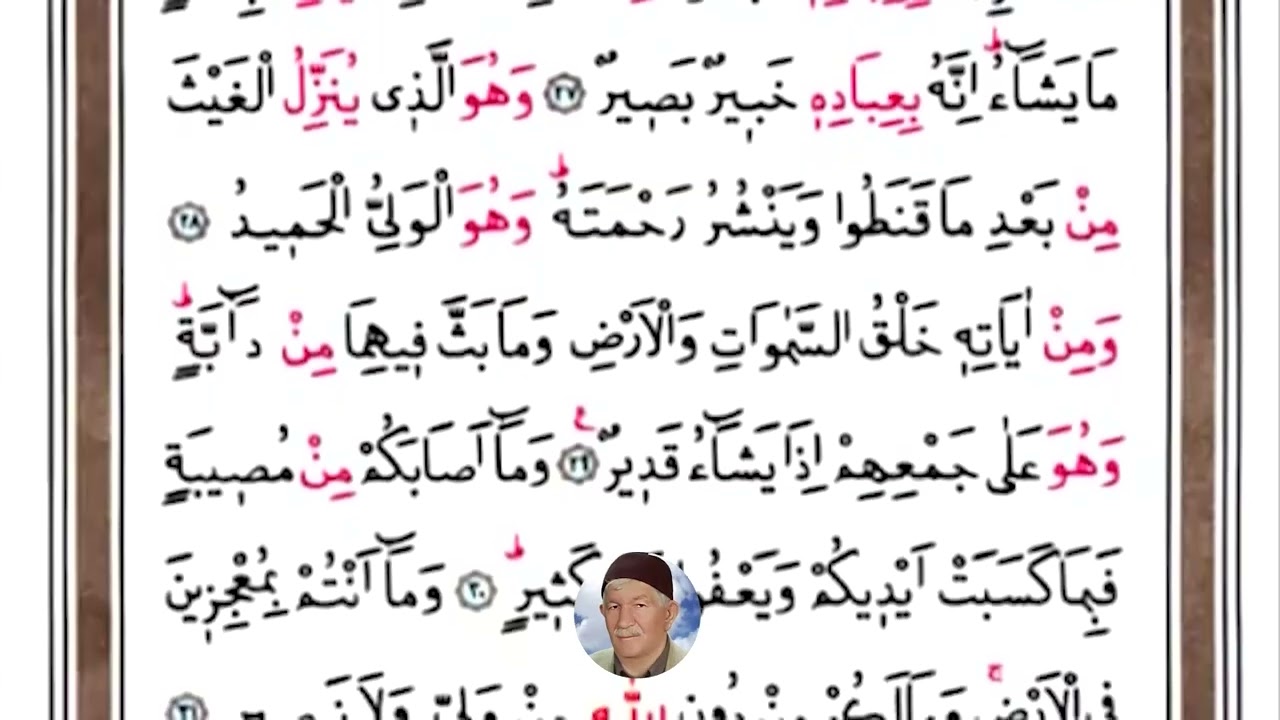 مَا يَشَٓاءُۜ اِنَّهُ بِعِبَادِهٖ خَبٖيرٌ بَصٖيرٌ ﴿٢٧﴾ وَهُوَ الَّذٖى يُنَزِّلُ الْغَيْثَ
مِنْ بَعْدِ مَا قَنَطُوا وَيَنْشُرُ رَحْمَتَهُۜ وَهُوَ الْوَلِىُّ الْحَمٖيدُ ﴿٢٨﴾
وَمِنْ اٰيَاتِهٖ خَلْقُ السَّمٰوَاتِ وَالْاَرْضِ وَمَا بَثَّ فٖيهِمَا مِنْ دَٓابَّةٍۜ
وَهُوَ عَلٰى جَمْعِهِمْ اِذَا يَشَٓاءُ قَدٖيرٌ ﴿٢٩﴾ وَمَٓا اَصَابَكُمْ مِنْ مُصٖيبَةٍ
فَبِمَا كَسَبَتْ اَيْدٖيكُمْ وَيَعْفُوا كَثٖيرٍۜ ﴿٣٠﴾ وَمَٓا اَنْتُمْ بِمُعْجِزٖينَ
فِى الْاَرْضِۚ وَمَا لَكُمْ مِنْ دُونِ اللّٰهِ مِنْ وَلِىٍّ وَلَا نَصٖيرٍ ﴿٣١﴾